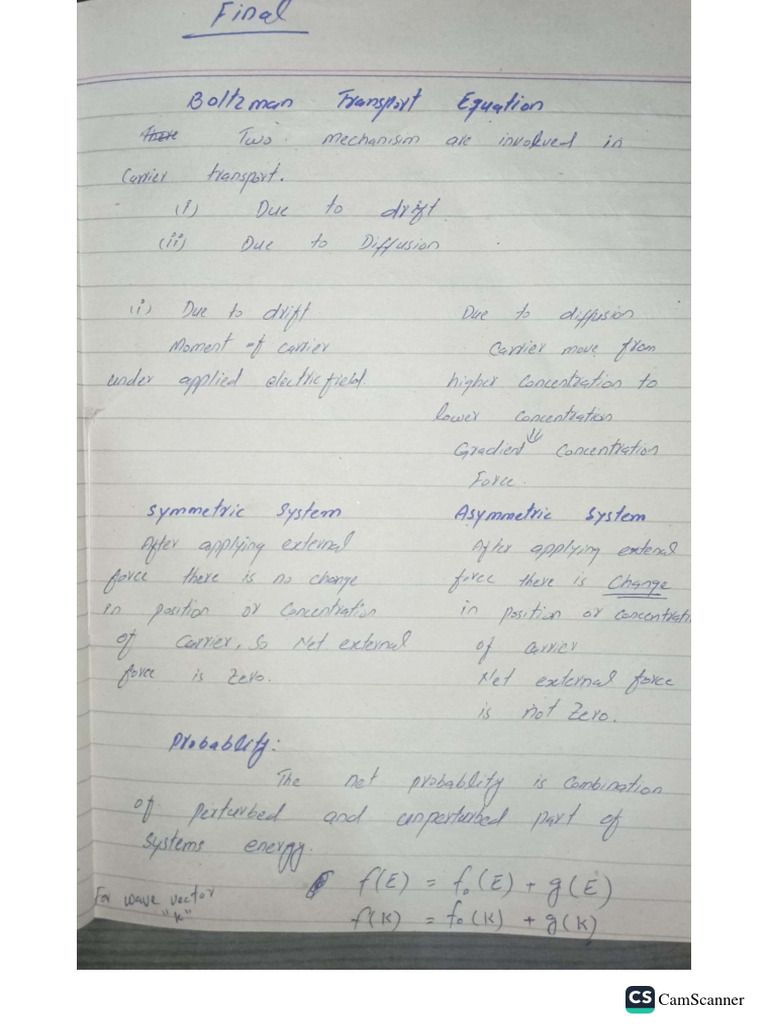 Final
Boltzman Transport Equation
There Two mechanisim are involved in
Carrier transport.
(i) Due to drift
(ii) Due to Diffusion
(i) Due to drift
Moment of carrier
under applied electric field.
Due to diffusion
Carrier move from
higher Concentration to
lower concentration
⇓
Gradient Concentration
Force.
Symmetric System
After applying external
force there is no change
in position or Concentration
of Carrier, So Net external
force is Zero.
Asymmetric System
After applying extenal
force there is Change
in position or concentrati
of carrier
Net external force
is not Zero.
Probablity:
The net probablity is Combination
of perturbed and unperturbed part of
systems energy.
f(E) = f₀(E) + g(E)
For wave vector
"k"
f(K) = f₀(K) + g(K)
CS CamScanner